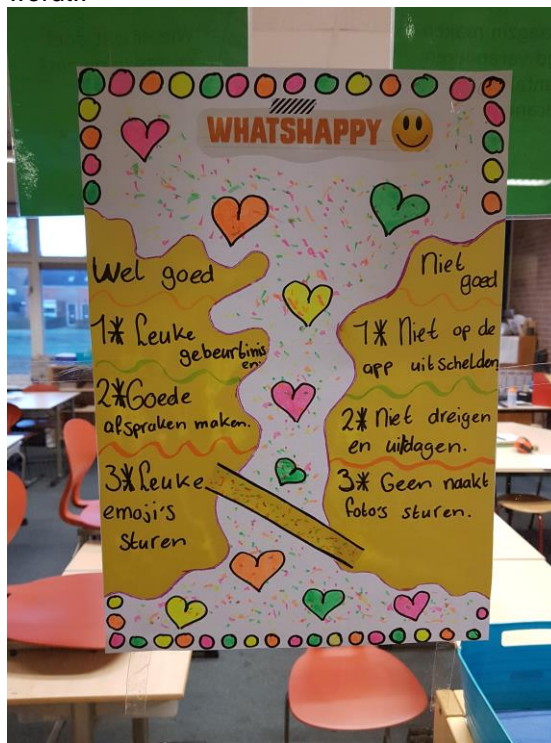 WHATSHAPPY
Wel goed
1* Leuke
gebeurtinis
en.
2* Goede
afspraken maken.
3* Leuke
emoji's
sturen
Niet
goed
1* Niet op de
app uitschelden
2* Niet dreigen
en uitdagen.
3* Geen naakt
foto's sturen.